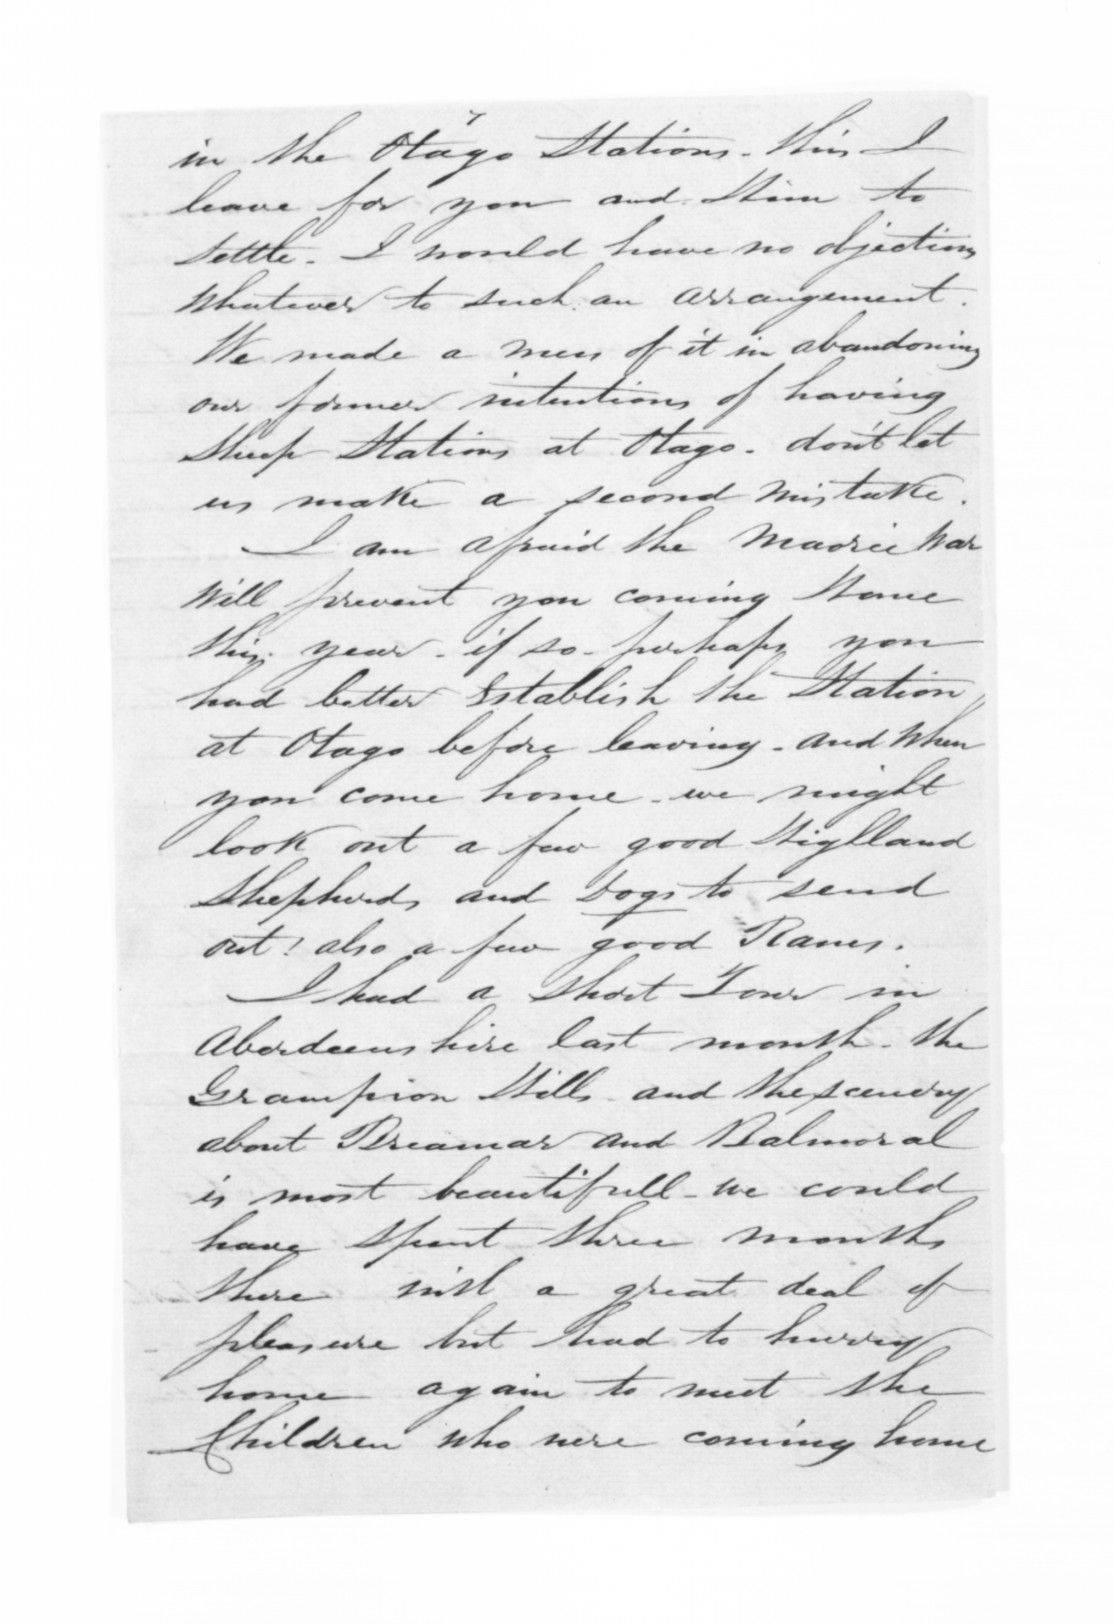 in the Otago Stations - this I
leave for you and Him to
settle. I would have no objections
whatever to such an arrangement.
We made a mess of it in abandoning
our former intentions of having
Sheep Stations at Otago - don't let
us make a second mistake.
I am afraid the Maorie War
Will prevent you coming Home
this year - if so - perhaps you
had better Establish the Station
at Otago before leaving - and When
you come home - we might
look out a few good Highlland
Shepherds and Dogs to send
out! also a few good Rams.
I had a short Tour in
Aberdeenshire last month - the
Grampion Hills - and the scenery
about Breamar and Balmoral
is most beautifull - we could
have spent three months
there with a great deal of
pleasure but had to hurry
home again to meet the
Children who were coming home